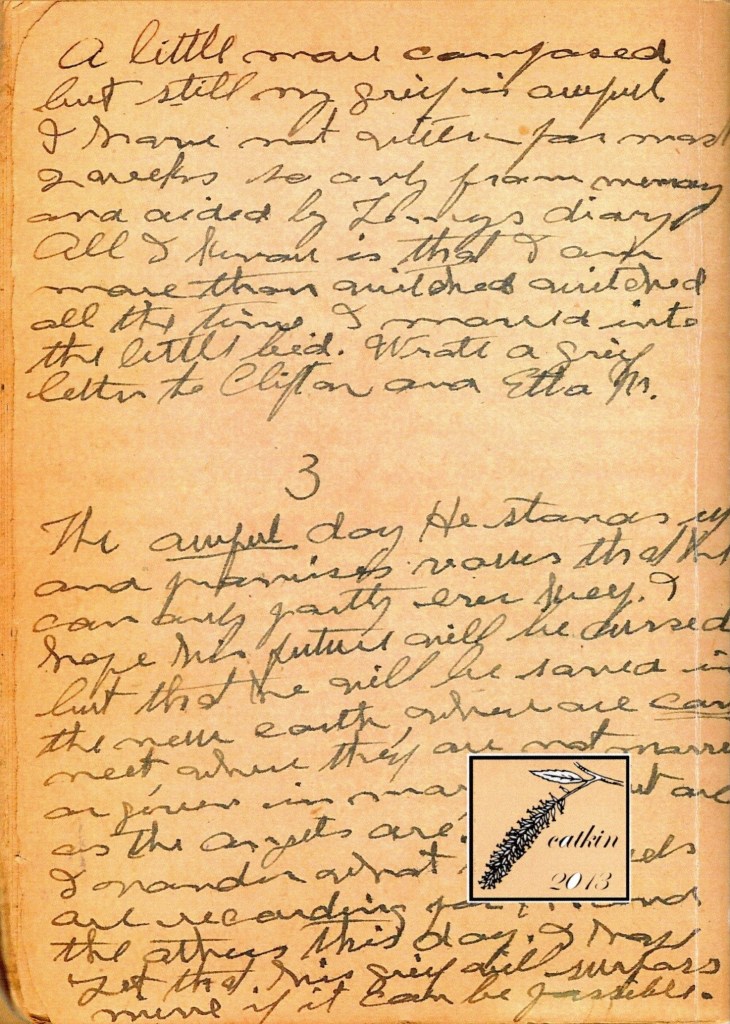 A little more composed
but still my grief is awful
I have not written for most
2 weeks so only from memory
and aided by diary
All I know is that I am
more than wretched wretched
all the time. I moved into
the little bed. Wrote a grief
letter to Clifton and Etta M.
3
The awful day He stands up
and promises vows that he
can only partly ever keep. I
hope his future will be cursed
but that he will be saved in
the new earth, where we can
meet where they are not marri
or given in mar ut are
as the angels are.
I wonder what els
are recording for and
the others this day. I hope
yet that his grief will surpass
mine if it can be possible.
catkin
2013